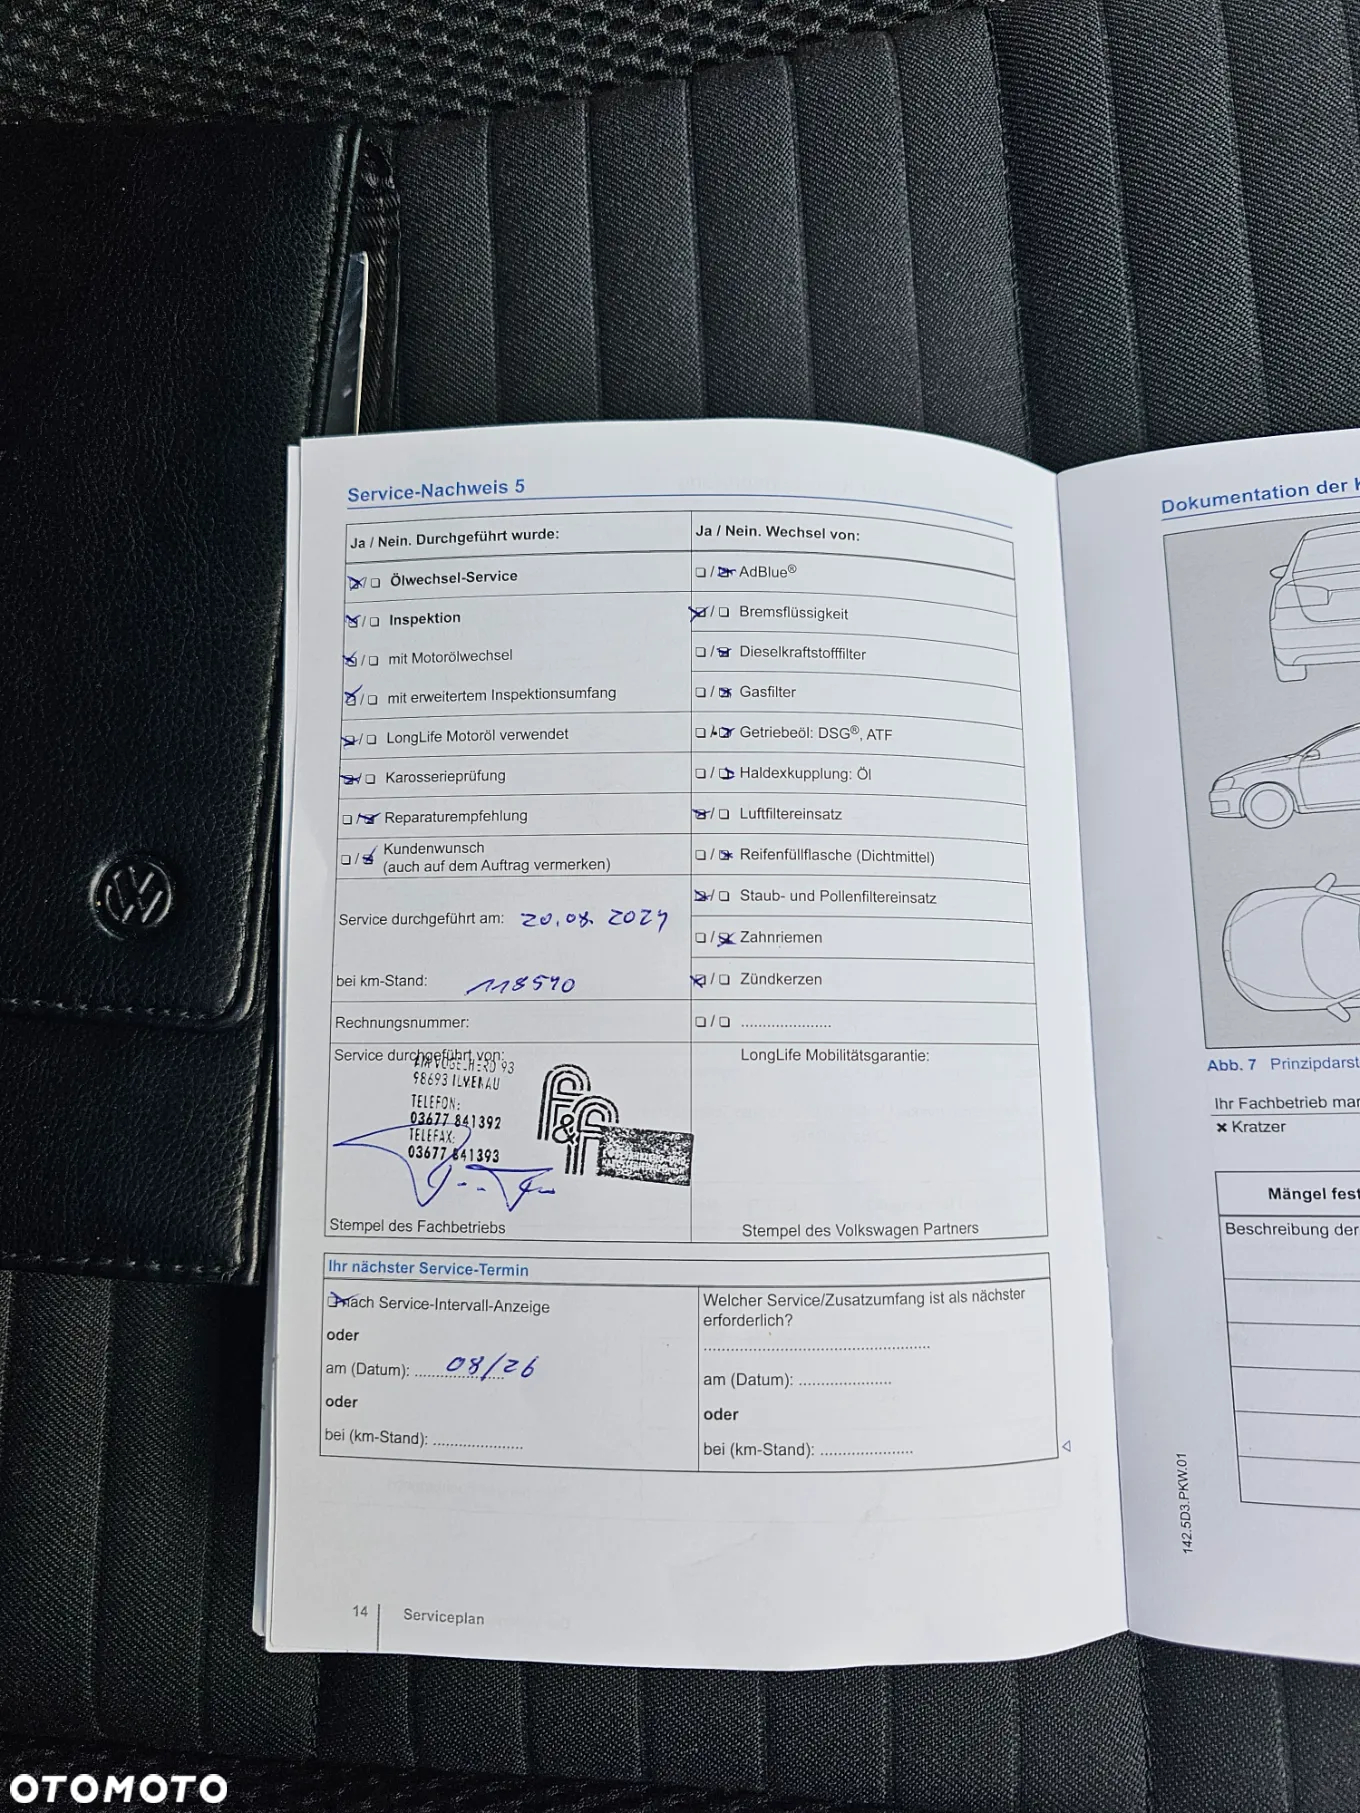 Service-Nachweis 5
Ja / Nein. Durchgeführt wurde:
Ölwechsel-Service
Inspektion
mit Motorölwechsel
mit erweitertem Inspektionsumfang
LongLife Motoröl verwendet
Karosserieprüfung
Reparaturempfehlung
Kundenwunsch
(auch auf dem Auftrag vermerken)
Service durchgeführt am: 20.08.2024
bei km-Stand: 118540
Rechnungsnummer:
Service durchgeführt von:
98693 ILMENAU
TELEFON:
03677 841392
TELEFAX:
03677 841393
F&F
Stempel des Fachbetriebs
Ja / Nein. Wechsel von:
AdBlue®
Bremsflüssigkeit
Dieselkraftstofffilter
Gasfilter
Getriebeöl: DSG®, ATF
Haldexkupplung: Öl
Luftfiltereinsatz
Reifenfüllflasche (Dichtmittel)
Staub- und Pollenfiltereinsatz
Zahnriemen
Zündkerzen
.....................
LongLife Mobilitätsgarantie:
Stempel des Volkswagen Partners
Ihr nächster Service-Termin
nach Service-Intervall-Anzeige
oder
am (Datum): 08/26
oder
bei (km-Stand): .....................
Welcher Service/Zusatzumfang ist als nächster
erforderlich?
am (Datum): .....................
oder
bei (km-Stand): .....................
14 Serviceplan
Dokumentation der
Abb. 7 Prinzipdarst
Ihr Fachbetrieb mar
Kratzer
Mängel fest
Beschreibung der
142.5D3.PKW.01
OTOMOTO